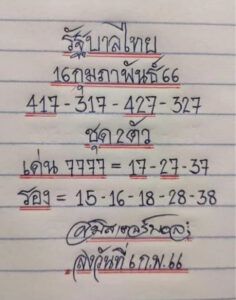 รัฐบาลไทย
16 กุมภาพันธ์ 66
417 - 317 - 427 - 327
ชุด 2 ตัว
เด่น 7777 = 17 - 27 - 37
รอง = 15 - 16 - 18 - 28 - 38
ลงวันที่ 6 ก.พ. 66